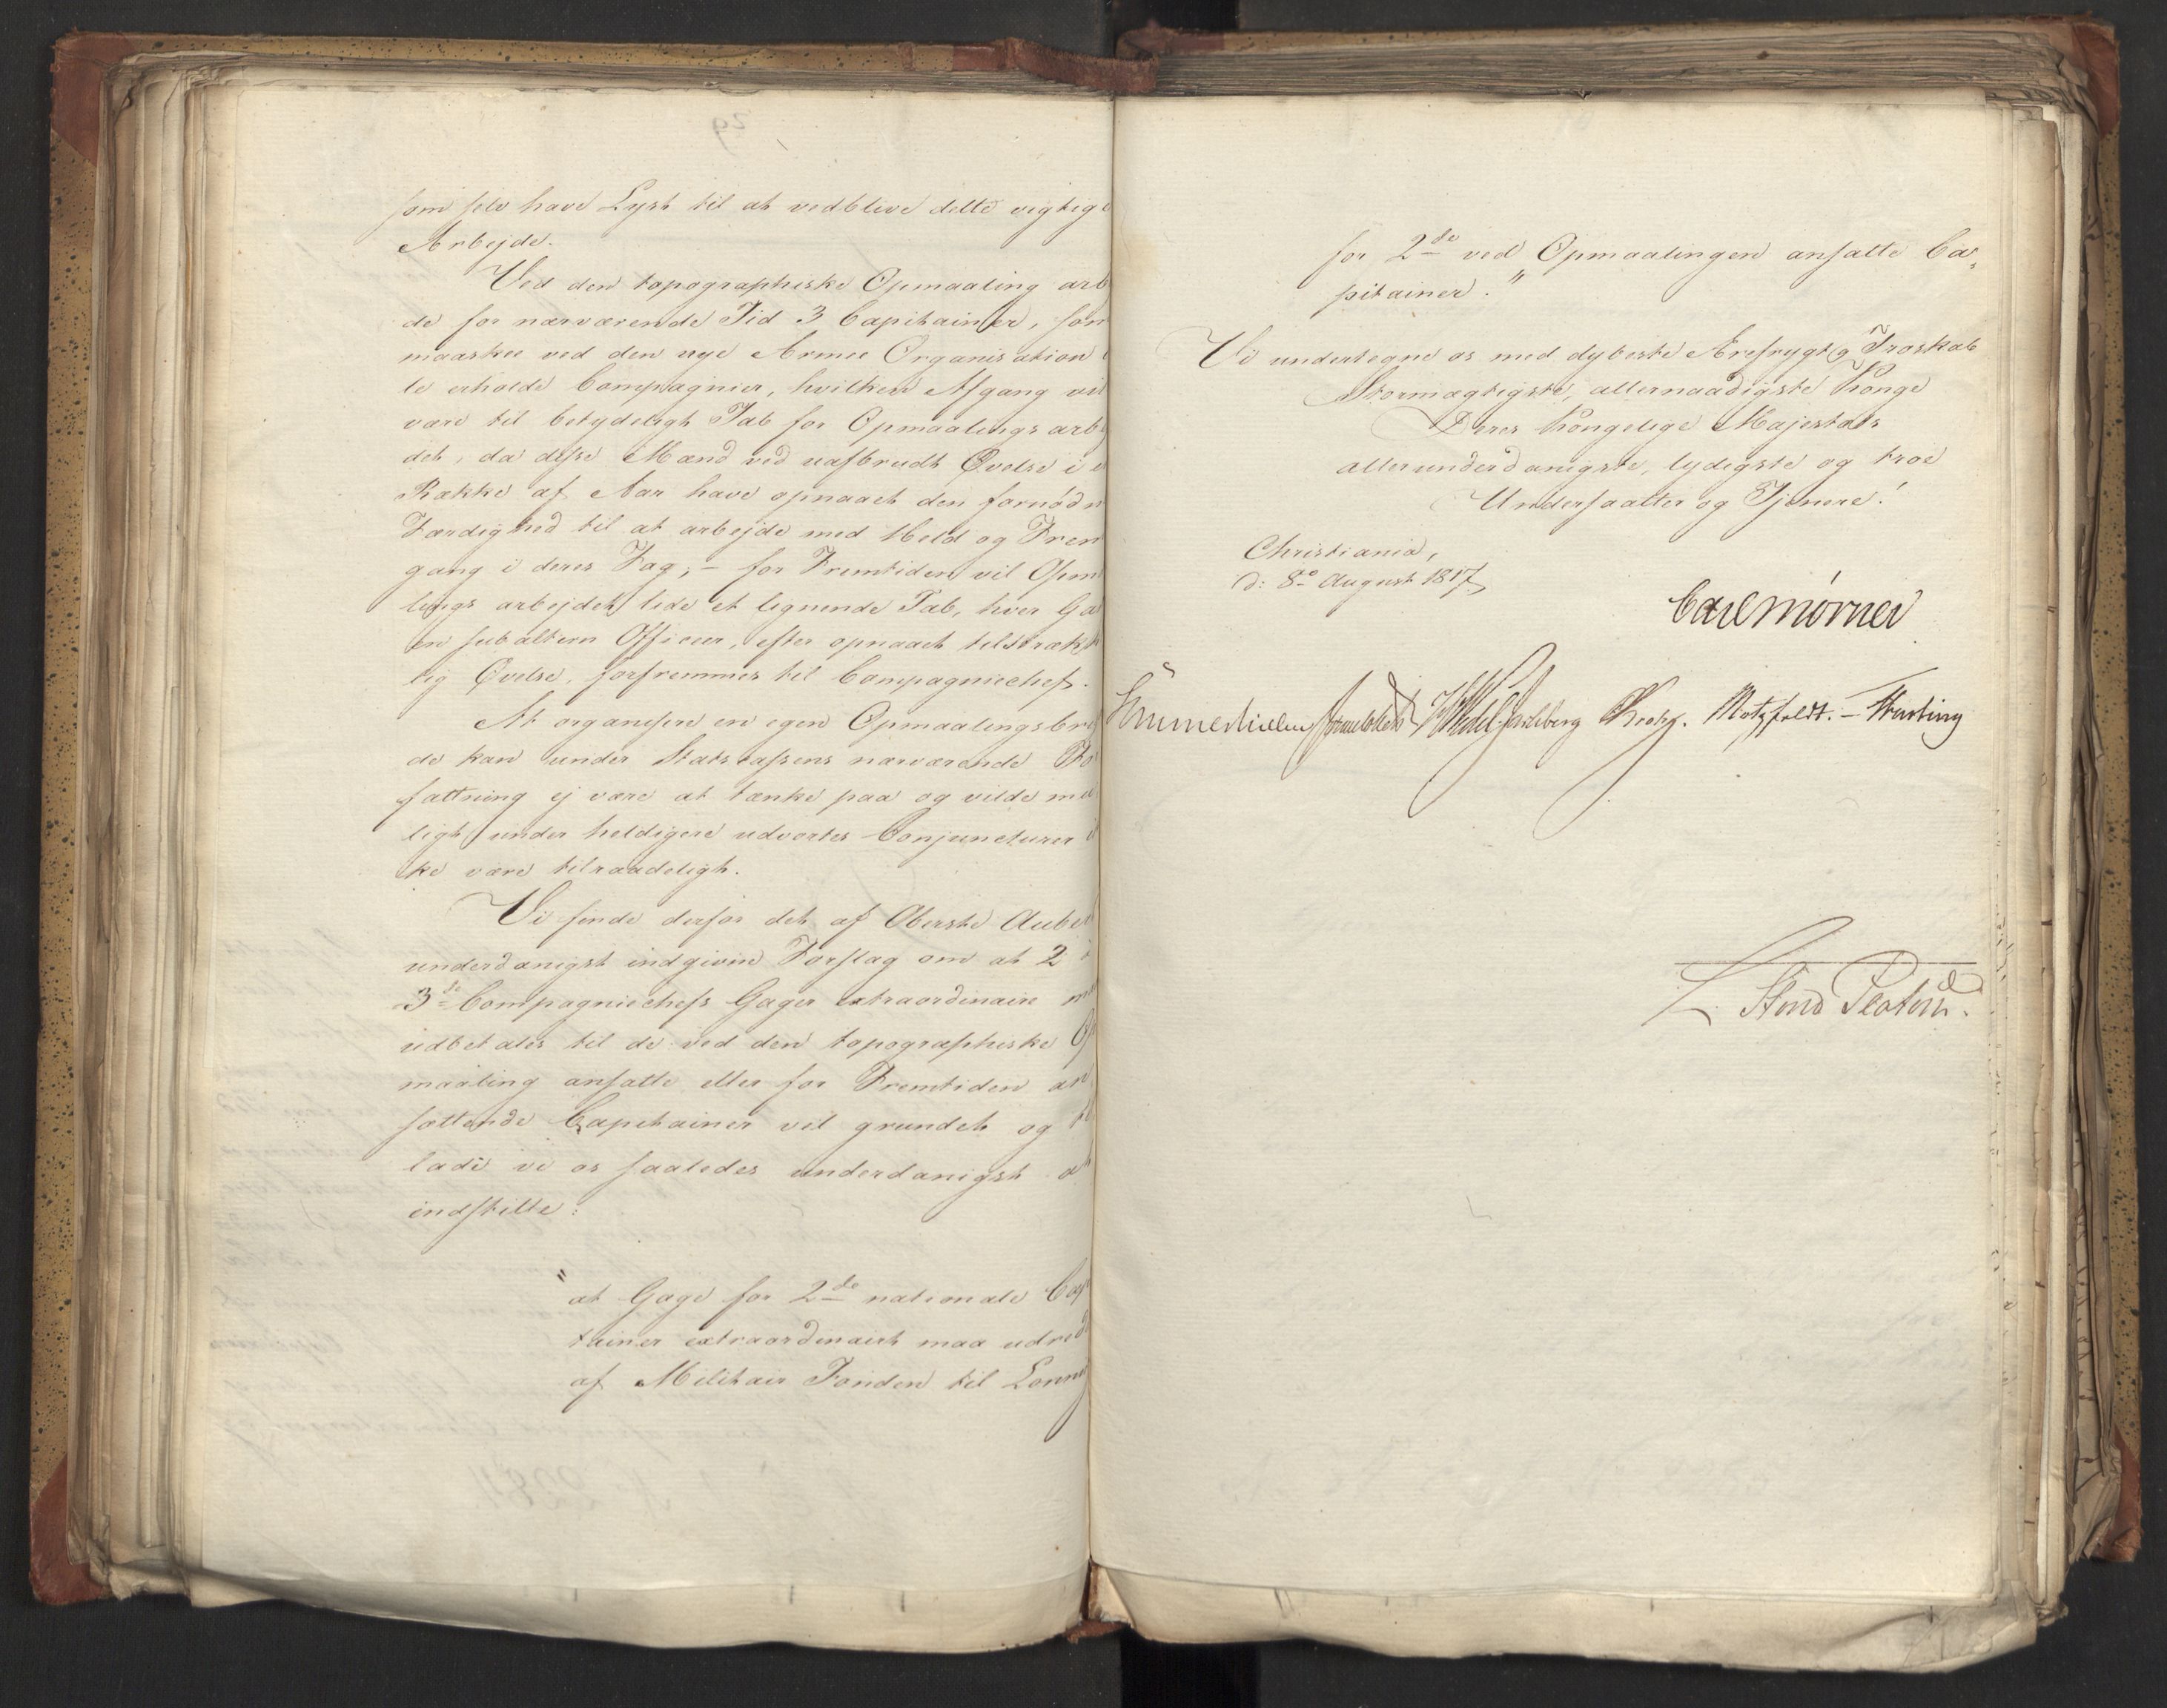 som selv have Lyst til at vedblive dette vigtige
Arbejde.
Ved den topographiske Opmaaling arb
de for nærværende Tid 3 Capitainer, som
maaskee ved den nye Armee Organisation
le erholde Compagnier, hvilken Afgang vil
være til betydeligt Tab for Opmaalings arb
det, da disse Mænd ved uafbrudt Øvelse i e
Række af Aar have opnaaet den fornødn
Færdighed til at arbejde med Held og Frem
gang i deres Fag; – for Fremtiden vil Opm
lings arbejdet lide et lignende Tab, hver Ga
en subaltern Officeer, efter opnaaet tilstræk
lig Øvelse, forfremmes til Compagniechef.
At organisere en egen Opmaalingsbri
de kan under Statscassens nærværende
fattning ej være at tænke paa og vilde
ligt under heldigere udvortes Conjuncturer i
ke være tilraadeligt.
Vi finde derfor det af Oberste Aubert
underdanigst indgivne Forslag om at 2
3de Compagniechefs Gager extraordinaire
udbetales til de ved den topographiske Op
maaling ansatte eller for Fremtiden an
sættende Capitainer vel grundet og
lade vi os saaledes underdanigst at
indstille:
"at Gage for 2de nationale Cap
tainer extraordinairt maa udrede
af Militair Fonden til Lønni
29
for 2de ved Opmaalingen ansatte Ca„
pitainer."
Vi undertegne os med dybeste Ærefrygt og Troskab
Stormægtigste, allernaadigste Konge
Deres Kongelige Majestæts
allerunderdanigste, lydigste og troe
Undersaatter og Tjenere!
Christiania,
d: 8de August 1817
Carl Mörner
Sommerhielm HWedel Jarlsberg Krohg. Motzfeldt. –